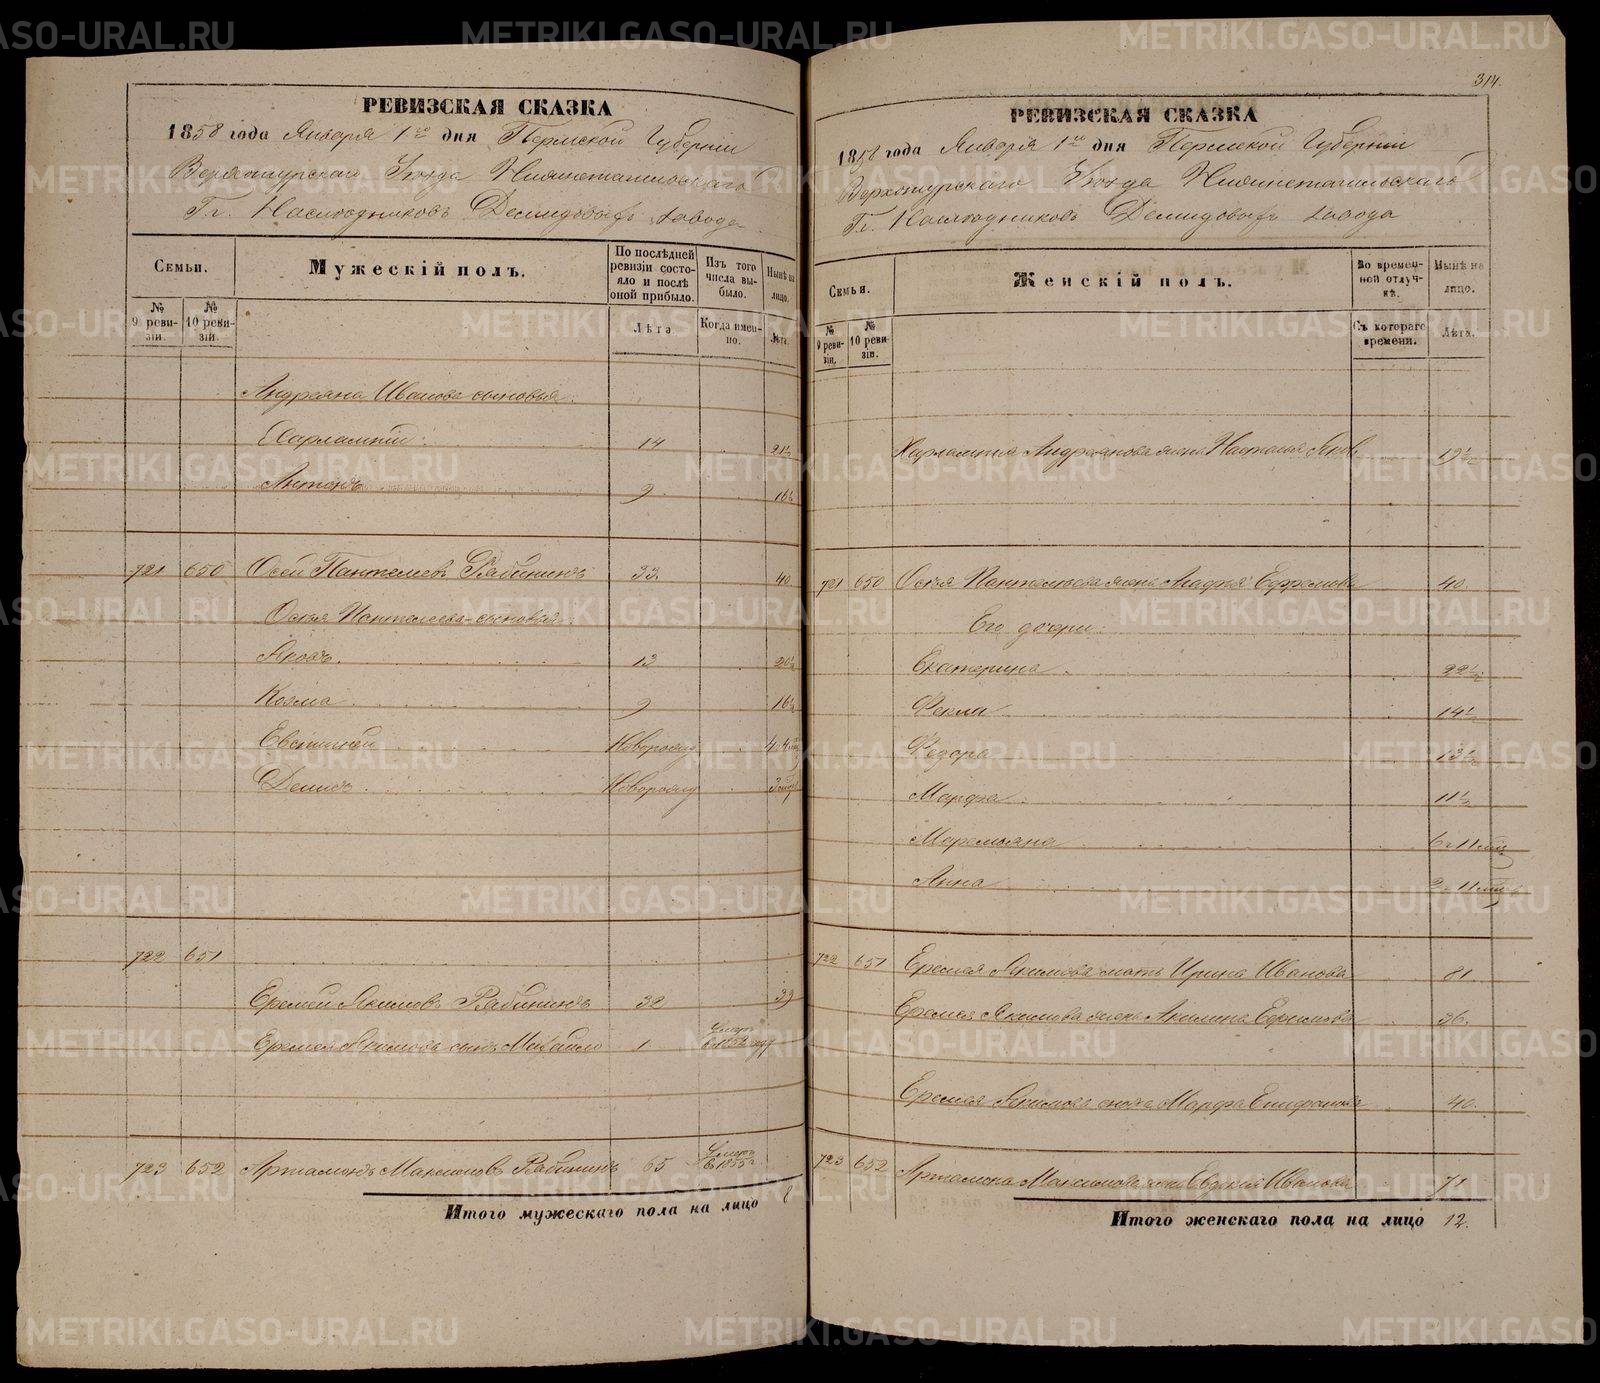 РЕВИЗСКАЯ СКАЗКА
1858 года Января 1го дня Пермской Губернии
Верхотурскаго Уѣзда Нижнетагильскаго
Гг. Наслѣдниковъ Демидовыхъ завода
Семьи.
Мужескій полъ.
По послѣдней ревизіи состояло и послѣ оной прибыло.
Изъ того числа выбыло.
Нынѣ на лицо.
№ 9 ревизіи.
№ 10 ревизіи.
Лѣта
Когда именно.
Лѣта.
Андреяна Иванова сыновья:
Харлампій 14 21½
Антонъ 9 16½
721 650 Осей Пантелеевъ Рябининъ 33 40
Осея Пантелеева сыновья:
Яковъ 13 20½
Козма 9 16½
Евстигней Новорожд
Демидъ Новорожд
722 651
Еремей Якимовъ Рябининъ 32 39
Еремея Якимова сынъ Михайло 1 Умеръ въ 185
723 652 Артамонъ Максимовъ Рябининъ 65 Умеръ въ 1855
Итого мужескаго пола на лицо 8
314.
РЕВИЗСКАЯ СКАЗКА
1858 года Января 1го дня Пермской Губерніи
Верхотурскаго Уѣзда Нижнетагильскаго
Гг. Наслѣдниковъ Демидовыхъ завода
Семьи.
Женскій полъ.
Во временной отлучкѣ.
Нынѣ на лицо.
№ 9 ревизіи.
№ 10 ревизіи.
Съ котораго времени.
Лѣта.
Харлампія Андреянова жена Настасья Яков 19½
721 650 Осея Пантелѣева жена Агафья Ефремова 40.
Его дочери:
Екатерина 22½
Фекла 14½
Федора 13½
Марфа 11½
Маремьяна 6 11 мѣс
Анна 2 11 мѣс
722 651 Еремея Якимова мать Ирина Иванова 61
Еремея Якимова жена Акилина Ефимова 36.
Еремея Якимова сноха Марфа Епифанова 40.
723 652 Артамона Максимова жена Евдокия Иванова 71
Итого женскаго пола на лицо 12.
METRIKI.GASO-URAL.RU